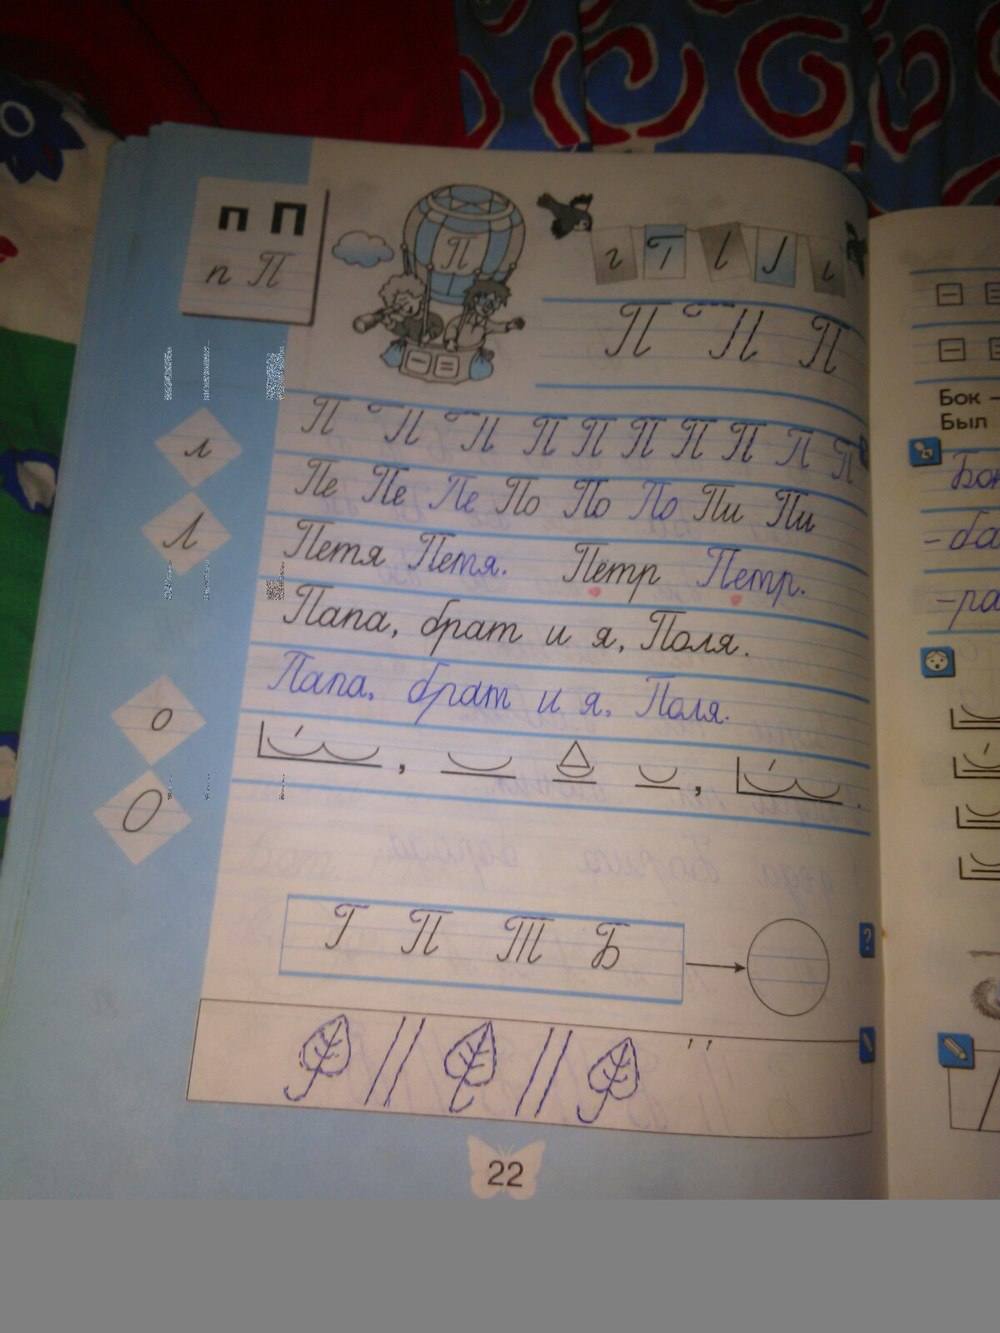 п П
п П
П
г Т
П П П
П П П П П П П П П П
Пе Пе Пе По По По Пи Пи
Петя Петя. Петр Петр.
Папа, брат и я, Поля.
Папа, брат и я, Поля.
л
Л
о
О
Г П Т Б
?
22
Бок –
Был